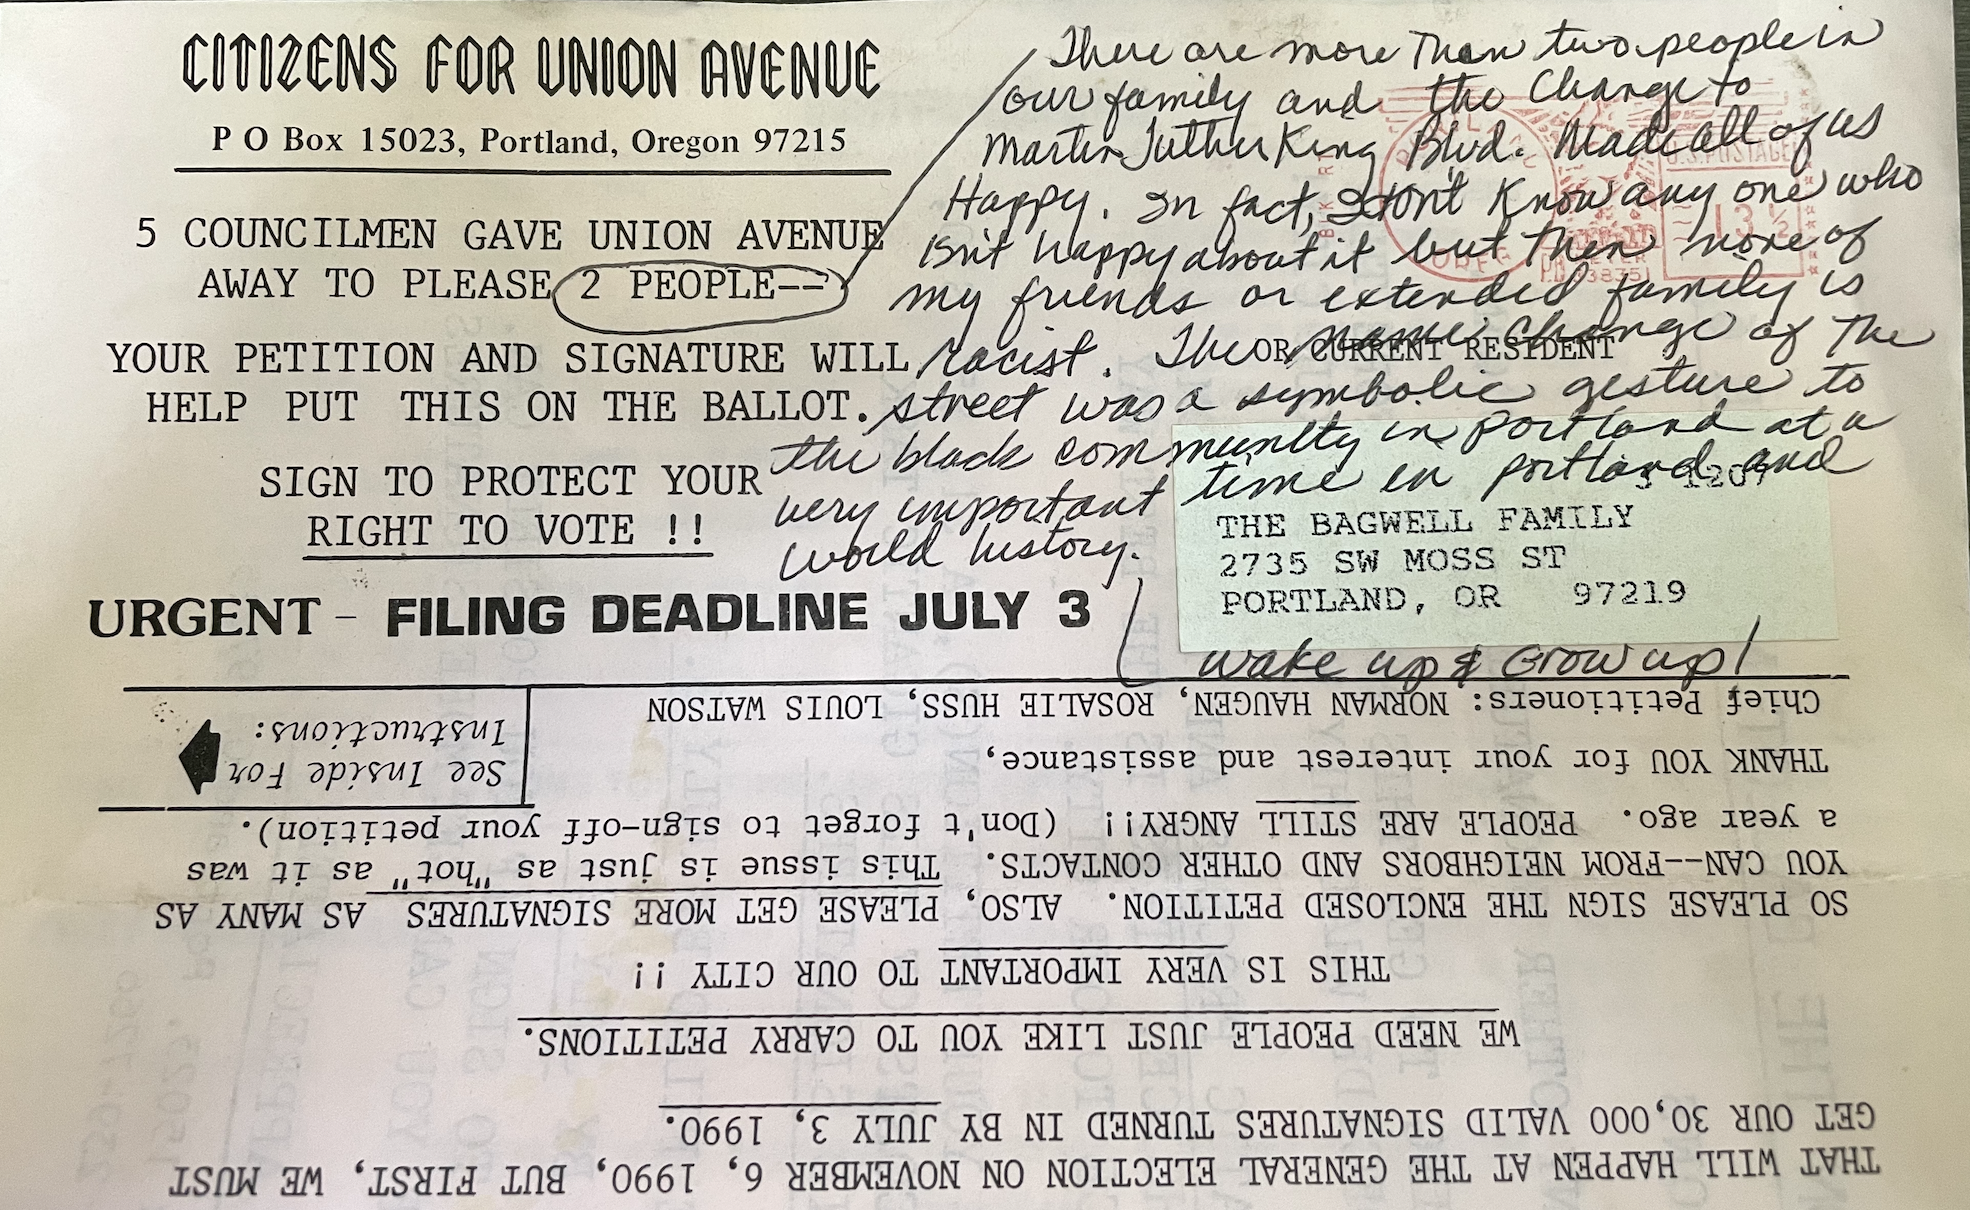 CITIZENS FOR UNION AVENUE
P O Box 15023, Portland, Oregon 97215
5 COUNCILMEN GAVE UNION AVENUE
AWAY TO PLEASE 2 PEOPLE--
YOUR PETITION AND SIGNATURE WILL
HELP PUT THIS ON THE BALLOT.
SIGN TO PROTECT YOUR
RIGHT TO VOTE !!
URGENT - FILING DEADLINE JULY 3
There are more Than two people in
our family and the Change to
Martin Luther King Blvd. Made all of us
Happy. In fact, I don't Know any one who
isn't happy about it but Then none of
my friends or extended family is
racist. The name change of The
street was a symbolic gesture to
the black community in Portland at a
very important time in portland and
world history.
Wake up & Grow up!
U.S. POSTAGE
13 1/2
OR CURRENT RESIDENT
THE BAGWELL FAMILY
2735 SW MOSS ST
PORTLAND, OR 97219
THAT WILL HAPPEN AT THE GENERAL ELECTION ON NOVEMBER 6, 1990, BUT FIRST, WE MUST
GET OUR 30,000 VALID SIGNATURES TURNED IN BY JULY 3, 1990.
WE NEED PEOPLE JUST LIKE YOU TO CARRY PETITIONS.
THIS IS VERY IMPORTANT TO OUR CITY !!
SO PLEASE SIGN THE ENCLOSED PETITION. ALSO, PLEASE GET MORE SIGNATURES AS MANY AS
YOU CAN--FROM NEIGHBORS AND OTHER CONTACTS. This issue is just as "hot" as it was
a year ago. PEOPLE ARE STILL ANGRY!! (Don't forget to sign-off your petition).
THANK YOU for your interest and assistance,
Chief Petitioners: NORMAN HAUGEN, ROSALIE HUSS, LOUIS WATSON
See Inside For
Instructions: